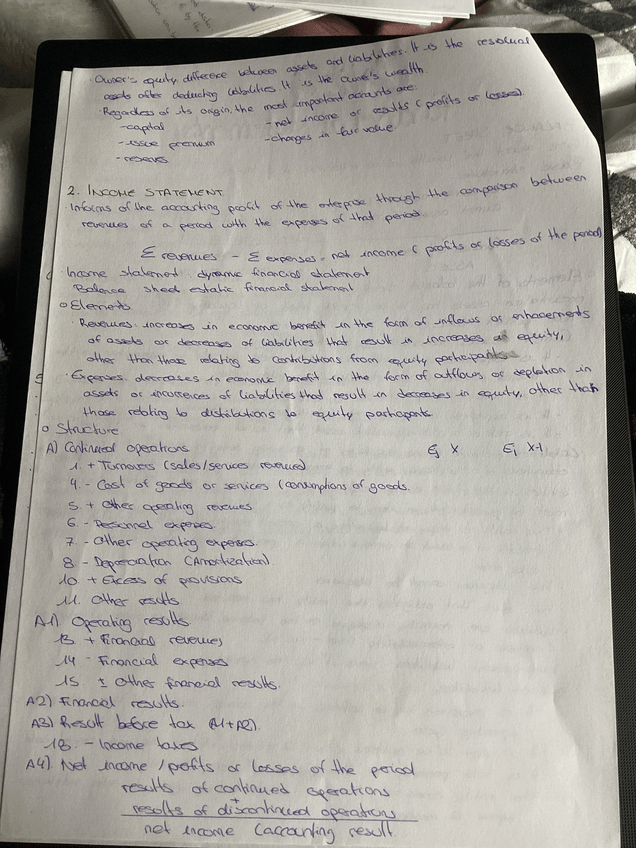 · Owner's equity difference between assets and liabilities. It is the residual
assets after deducting liabilities It is the owne's wealth.
· Regardless of its origin, the most important accounts are:
- capital - net income or results (profits or losses).
- issue premium - changes in fair value.
- reserves
2. INCOME STATEMENT
· Informs of the accounting profit of the enterprise through the comparison between
revenues of a period with the expenses of that period
Σ revenues - Σ expenses = net income ( profits of losses of the period)
· Income statement dynamic financial statement
Balance sheet estatic financial statement
o Elements
· Revenues: increases in economic benefit in the form of inflows or enhacements
of assets or decreases of liabilities that result in increases equity,
other than those relating to contributions from equity participants
· Expenses decreases in economic benefit in the form of outflows or depletion in
assets or incurrences of liabilities that result in decreases in equity, other than
those relating to distributions to equity participants
o Structure
A) Continued operations Ej X Ej X-1
1. + Turnovers (sales/services revenues)
4. - Cost of goods or services (consumptions of goods.
5. + Other operating revenues
6. - Personnel expenses.
7. - Other operating expenses.
8. - Depreciation (Amortization)
10 + Excess of provisions
11. Other results
A1) Operating results
13. + Financial revenues
14 - Financial expenses
15 ± Other financial results.
A2) Financial results.
A3) Result before tax (A1+A2).
18. - Income taxes
A4). Net income /profits or losses of the period
results of continued operations
+
results of discontinued operations
net income (accounting result.